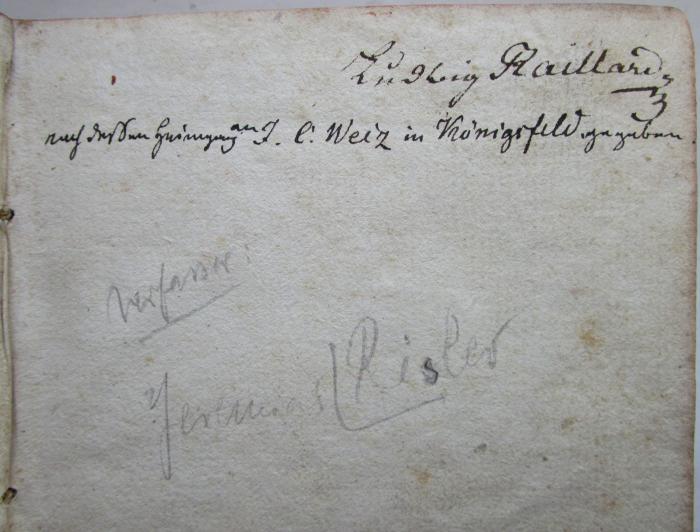 Ludwig Raillard
nach dessen Heimgang an J. C. Weiz in Königsfeld gegeben.
Verfasser:
Jeremias Risler